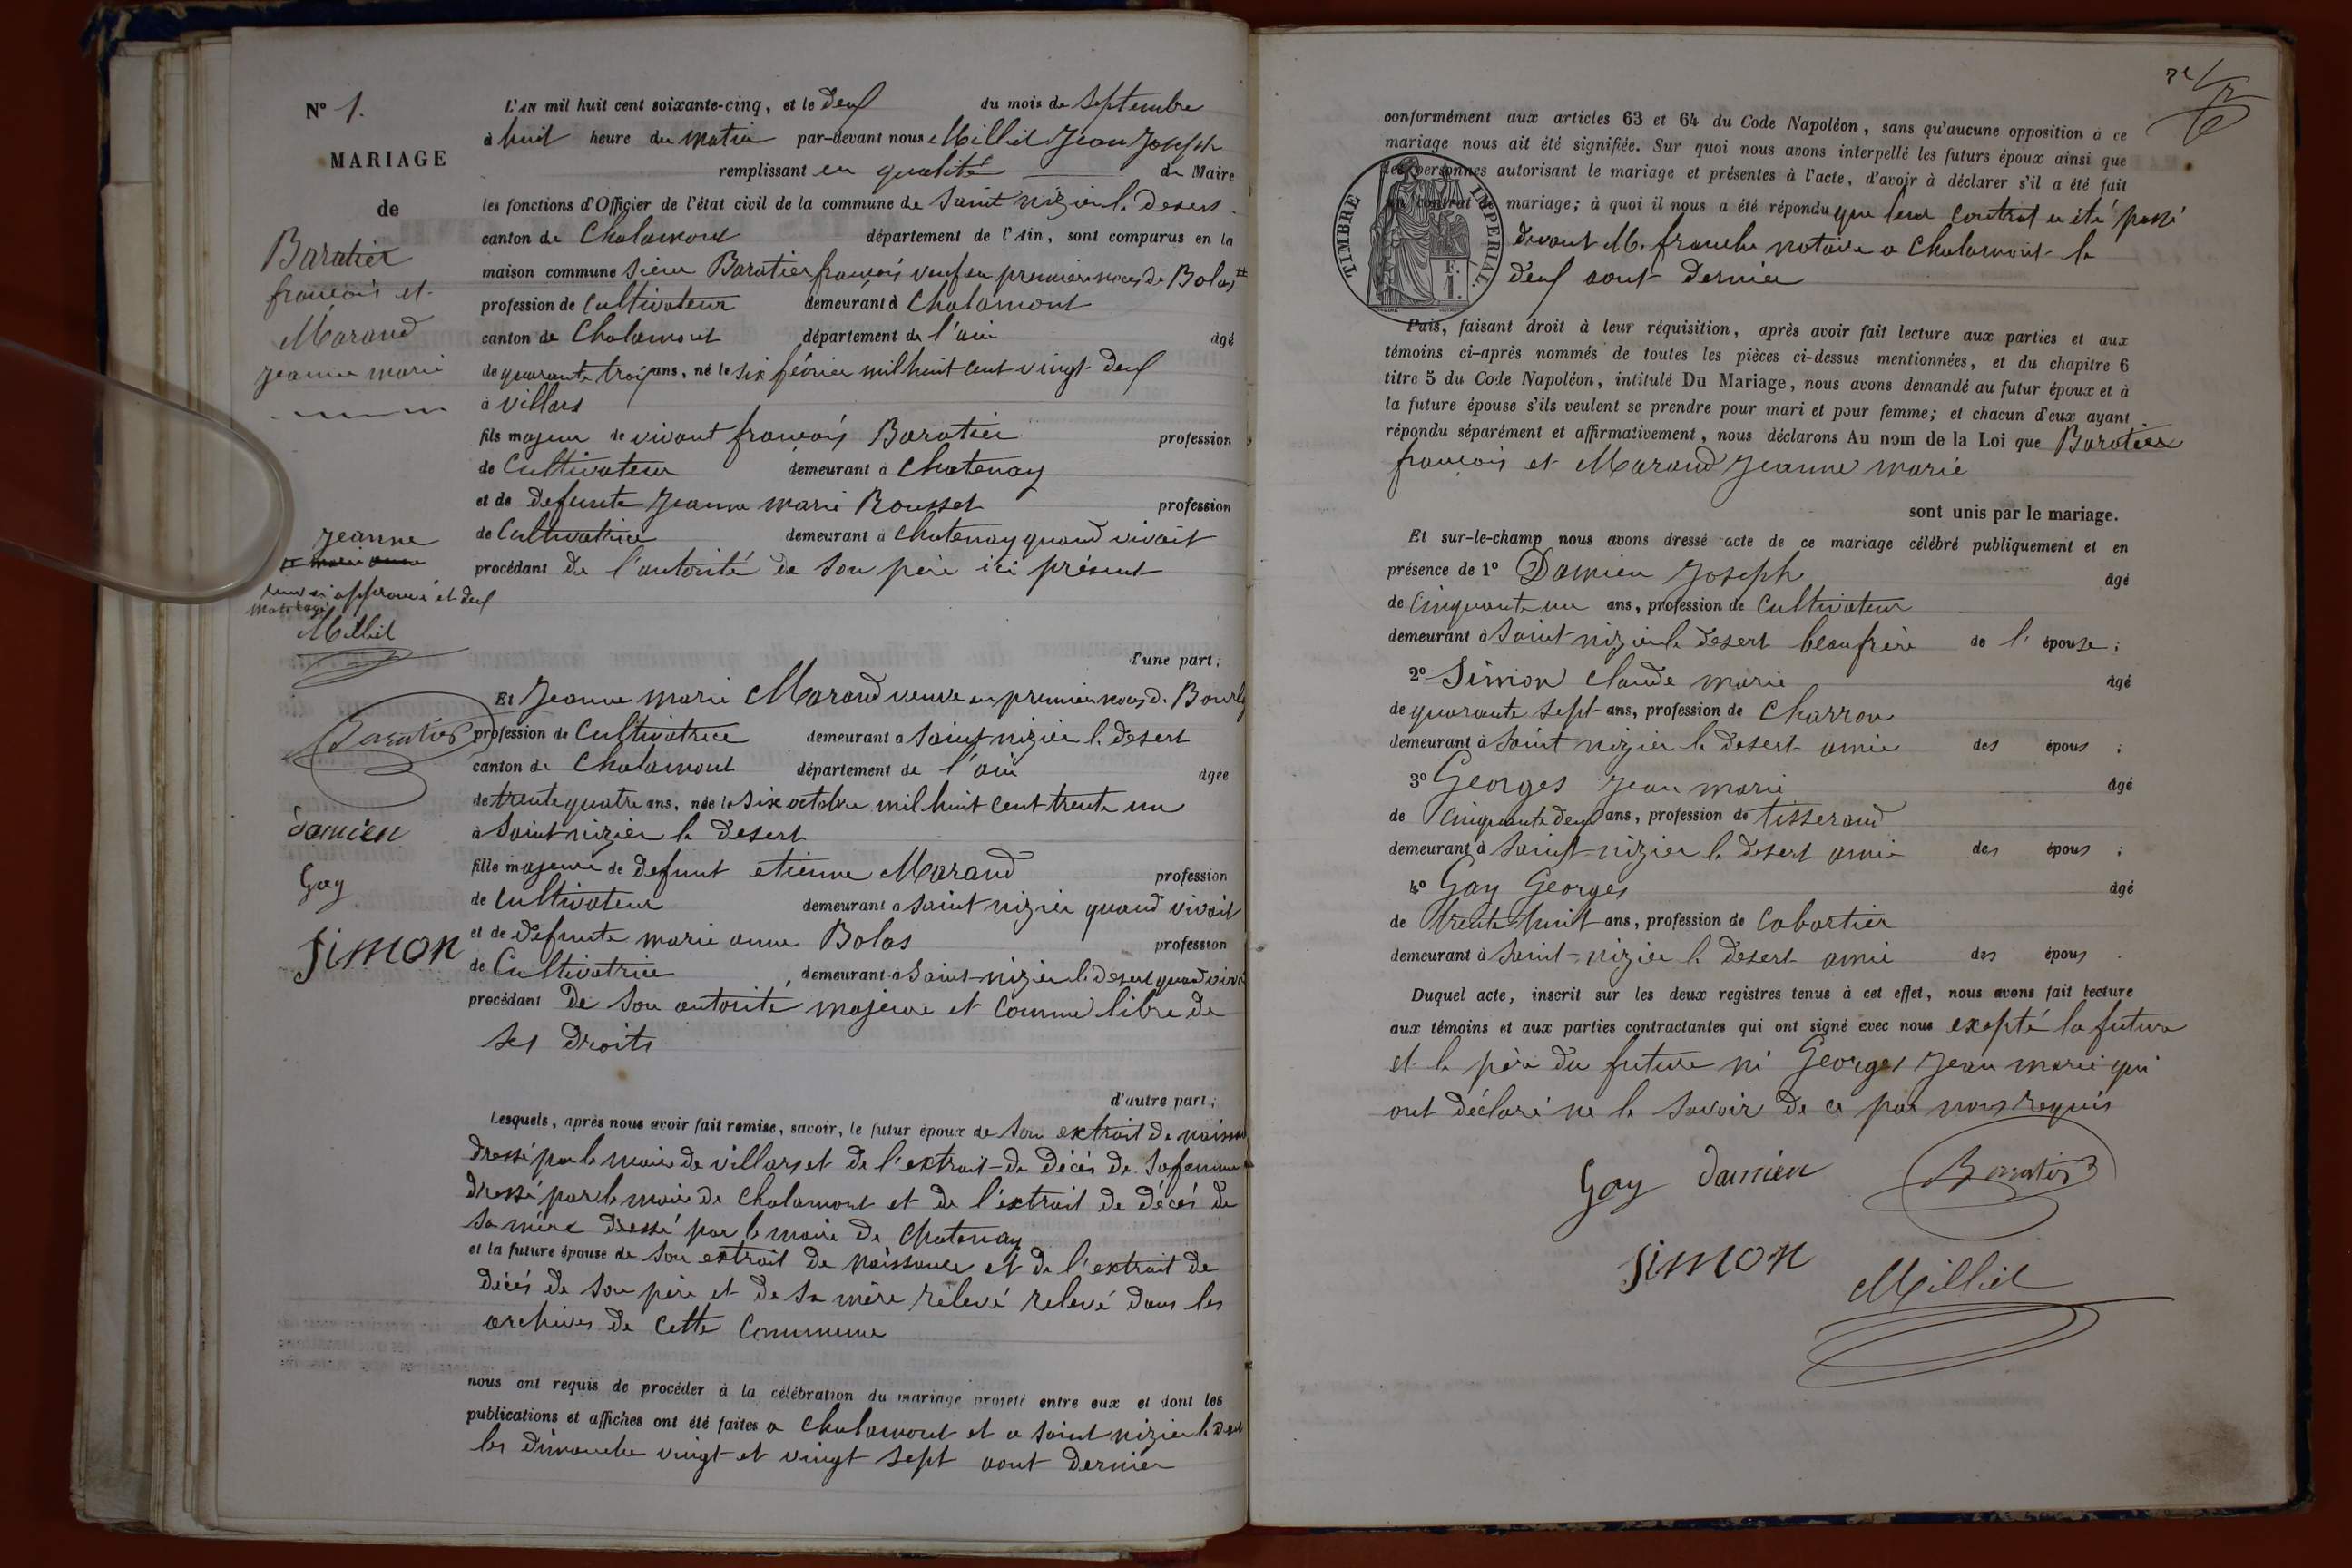 N° 1.
MARIAGE
de
Baratier
françois et
Marand
jeanne marie
L'AN mil huit cent soixante-cinq, et le deux du mois de Septembre
à huit heure du matin par-devant nous Milliet Jean Joseph
remplissant en qualité de Maire
les fonctions d'Officier de l'état civil de la commune de Saint nizier le desert
canton de Chalamont département de l'Ain, sont comparus en la
maison commune sieur Baratier françois veuf en premier noces de Bolas #
profession de Cultivateur demeurant à Chalamont
canton de Chalamont département de l'ain âgé
de quarante trois ans, né le six février mil huit cent vingt-deux
à villars
fils majeur de vivant françois Baratier profession
de Cultivateur demeurant à Chatenay
et de defunte Jeanne marie Rousset profession
de Cultivatrice demeurant à Chatenay quand vivait
procédant de l'autorité de son père ici présent
jeanne
marie anne
approuvé et deux
Milliet
d'une part;
Et Jeanne marie Marand veuve en premier noces d.
profession de Cultivatrice demeurant à Saint nizier le desert
canton de Chalamont département de l'ain âgée
de trente quatre ans, née le Six octobre mil huit cent trente un
à Saint nizier le desert
fille majeure de defunt etienne Marand profession
de Cultivateur demeurant à Saint nizier quand vivait
et de defunte marie anne Bolas profession
de Cultivatrice demeurant à Saint-nizier le desert quand vivai
procédant de son autorité majeure et comme libre de
ses droits
Baratier
damien
Gay
Simon
d'autre part;
Lesquels, après nous avoir fait remise, savoir, le futur époux de son extrait de naissan
dressé par le maire de villars et de l'extrait de décès de sa femme
dressé par le maire de Chalamont et de l'extrait de décès de
sa mère dressé par le maire de Chatenay
et la future épouse de son extrait de naissance et de l'extrait de
décès de son père et de sa mère rélevé relevé dans les
archives de cette Commune
nous ont requis de procéder à la célébration du mariage projeté entre eux et dont les
publications et affiches ont été faites a Chalamont et a Saint nizier le desert
les dimanche vingt et vingt sept aout dernier
conformément aux articles 63 et 64 du Code Napoléon, sans qu'aucune opposition à ce
mariage nous ait été signifiée. Sur quoi nous avons interpellé les futurs époux ainsi que
les personnes autorisant le mariage et présentes à l'acte, d'avoir à déclarer s'il a été fait
un contrat de mariage; à quoi il nous a été répondu que leur contrat a été passé
devant Me franche notaire a Chalamont le
deux aout dernier
TIMBRE IMPERIAL.
F.
1.
Puis, faisant droit à leur réquisition, après avoir fait lecture aux parties et aux
témoins ci-après nommés de toutes les pièces ci-dessus mentionnées, et du chapitre 6
titre 5 du Code Napoléon, intitulé Du Mariage, nous avons demandé au futur époux et à
la future épouse s'ils veulent se prendre pour mari et pour femme; et chacun d'eux ayant
répondu séparément et affirmativement, nous déclarons Au nom de la Loi que Baratier
françois et Marand Jeanne marie
sont unis par le mariage.
Et sur-le-champ nous avons dressé acte de ce mariage célébré publiquement et en
présence de 1° Damien Joseph âgé
de Cinquante un ans, profession de Cultivateur
demeurant à Saint-nizier le desert beaufrère de l'épouse;
2° Simon Claude marie âgé
de quarante sept ans, profession de Charron
demeurant à Saint nizier le desert amie des épous;
3° Georges Jean marie âgé
de Cinquante deux ans, profession de tisserand
demeurant à Saint-nizier le desert amie des épous;
4° Gay Georges âgé
de trente huit ans, profession de Cabartier
demeurant à Saint-nizier le desert amie des épous.
Duquel acte, inscrit sur les deux registres tenus à cet effet, nous avons fait lecture
aux témoins et aux parties contractantes qui ont signé avec nous exepté la future
et le père du future ni Georges Jean marie qui
ont déclaré ne le savoir de ce par nous requis
Gay damien Baratier
Simon
Milliet